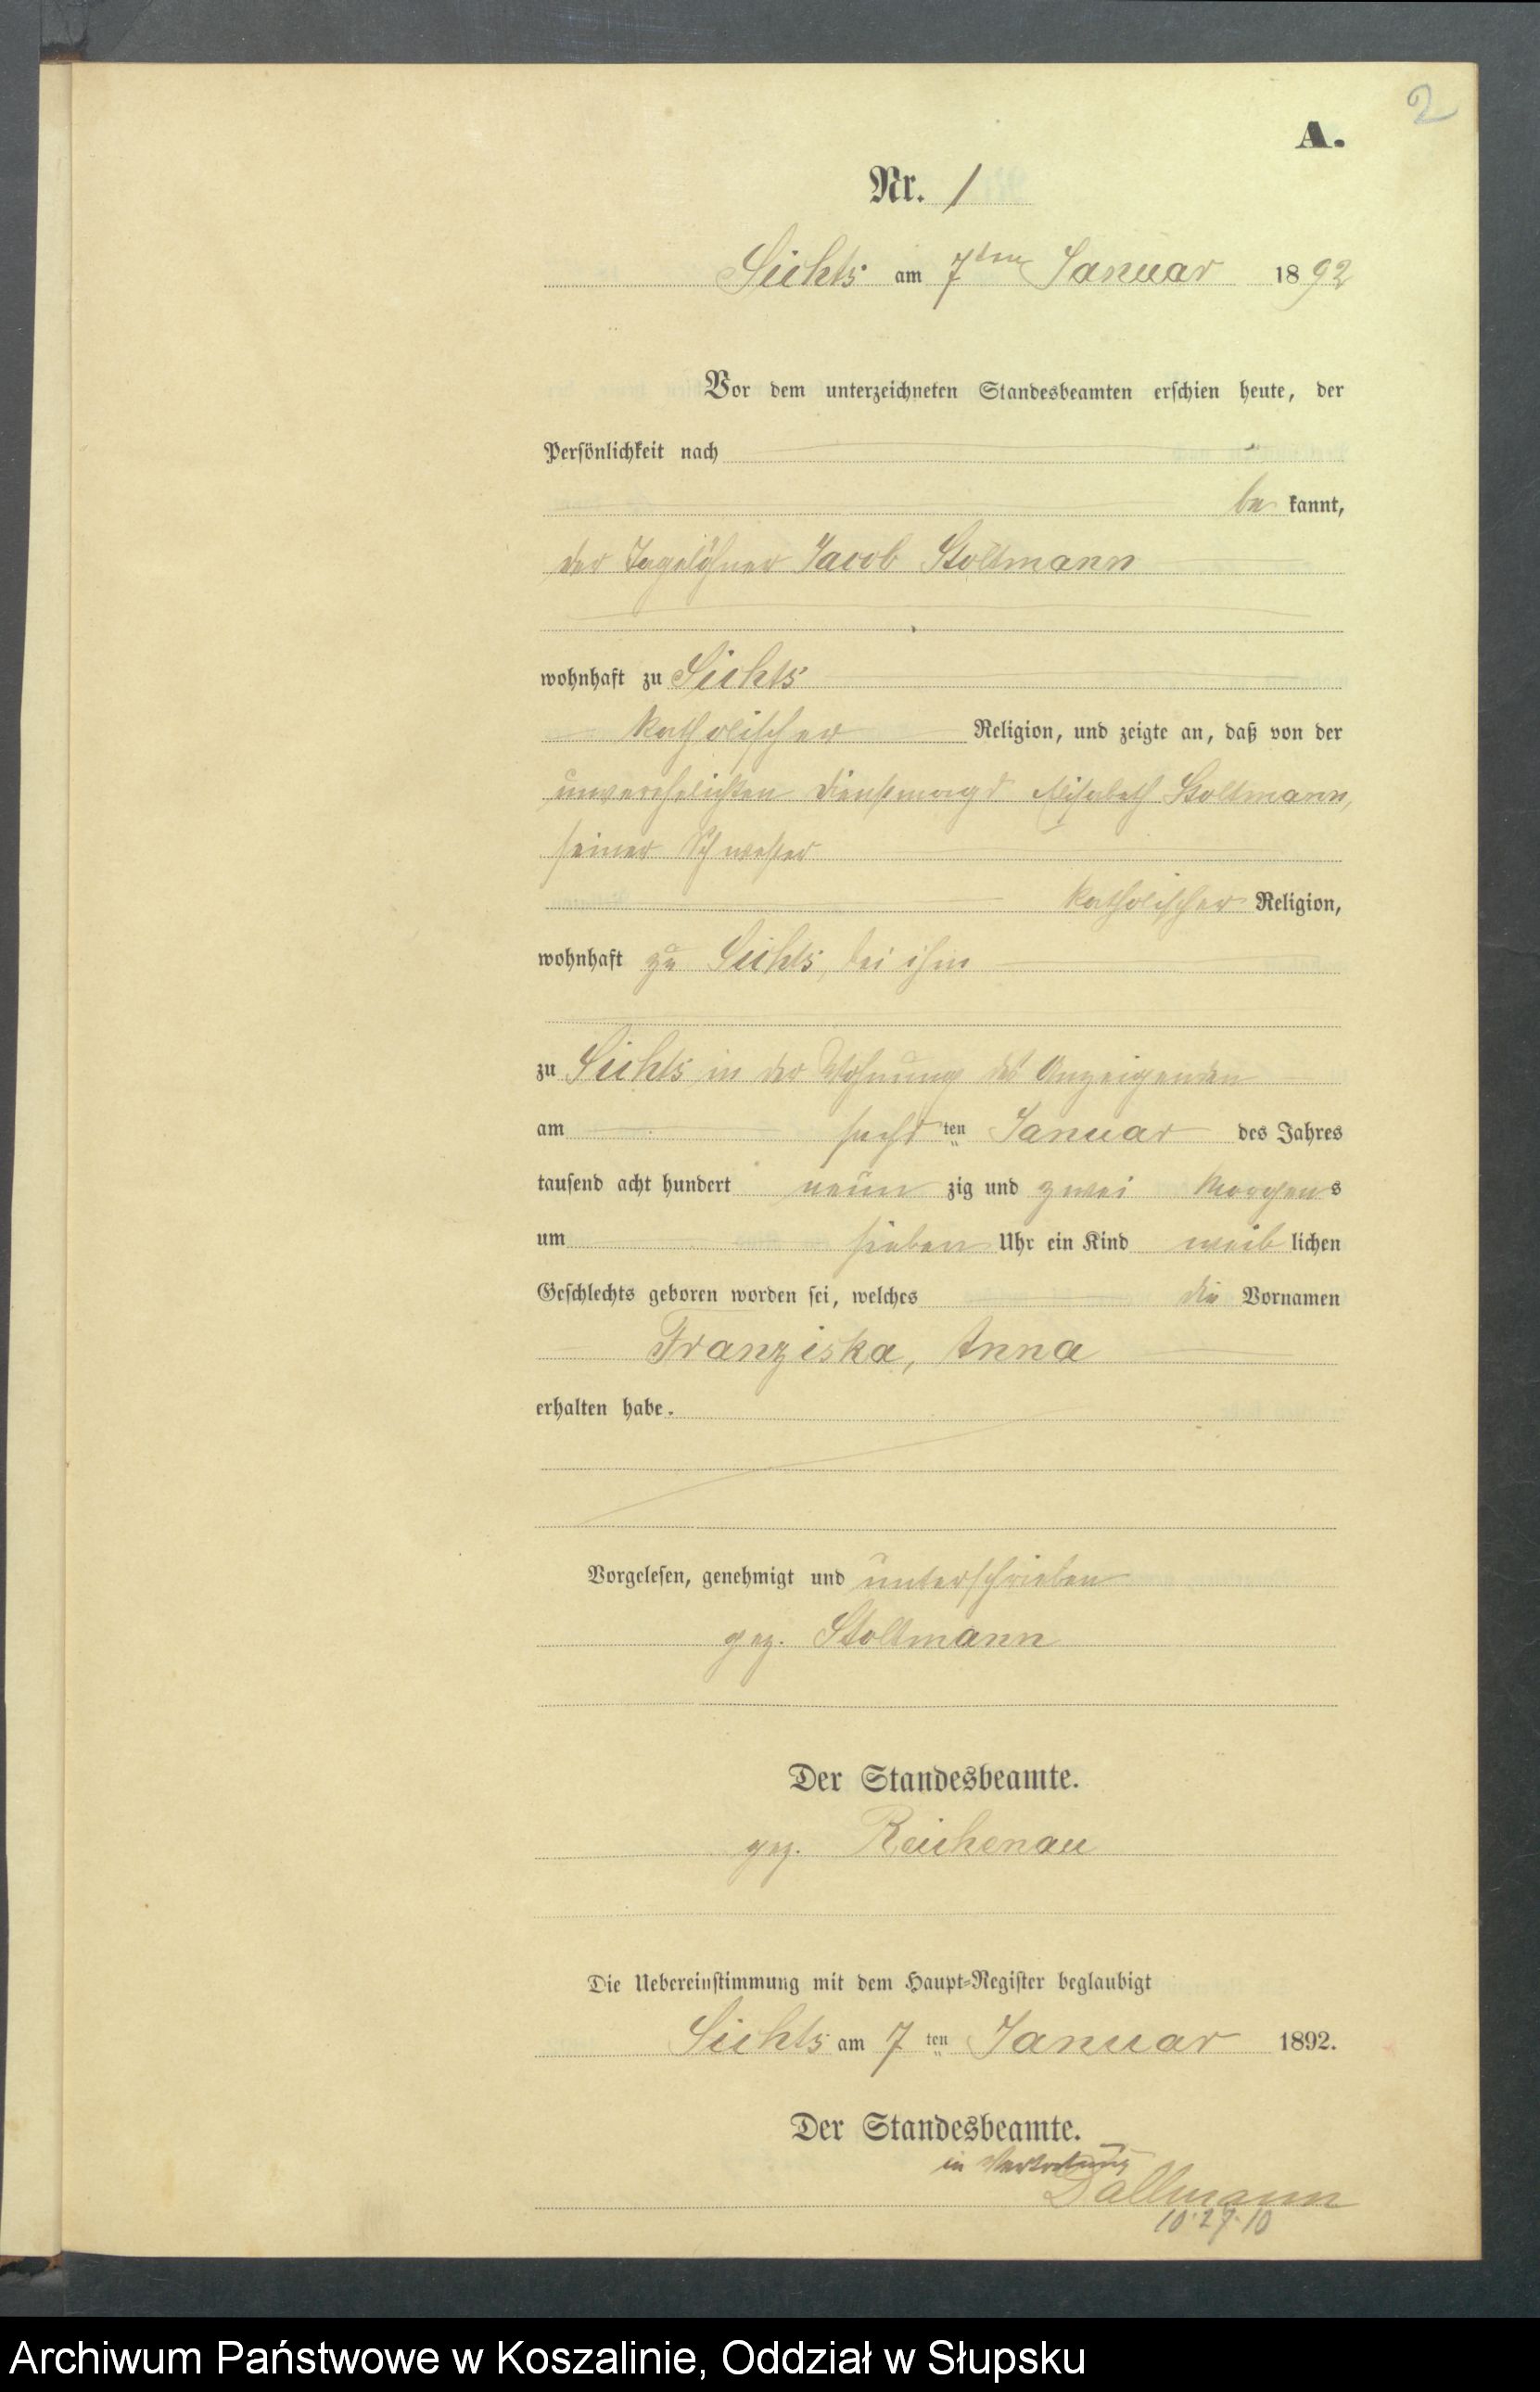 2
A.
Nr. 1
Sichts am 7ten Januar 1892
Vor dem unterzeichneten Standesbeamten erschien heute, der
Persönlichkeit nach
be kannt,
der Tagelöhner Jacob Stoltmann
wohnhaft zu Sichts
katholischer Religion, und zeigte an, daß von der
unverehelichten Dienstmagd Elisabeth Stoltmann,
seiner Schwester
katholischer Religion,
wohnhaft zu Sichts, bei ihm
zu Sichts in der Wohnung des Anzeigenden
am sechs ten Januar des Jahres
tausend acht hundert neun zig und zwei Morgens
um sieben Uhr ein Kind weib lichen
Geschlechts geboren worden sei, welches die Vornamen
Franziska, Anna
erhalten habe.
Vorgelesen, genehmigt und unterschrieben
gez. Stoltmann
Der Standesbeamte.
gez. Reichenau
Die Uebereinstimmung mit dem Haupt-Register beglaubigt
Sichts am 7 ten Januar 1892.
Der Standesbeamte.
in Vertretung
Dallmann
Archiwum Państwowe w Koszalinie, Oddział w Słupsku